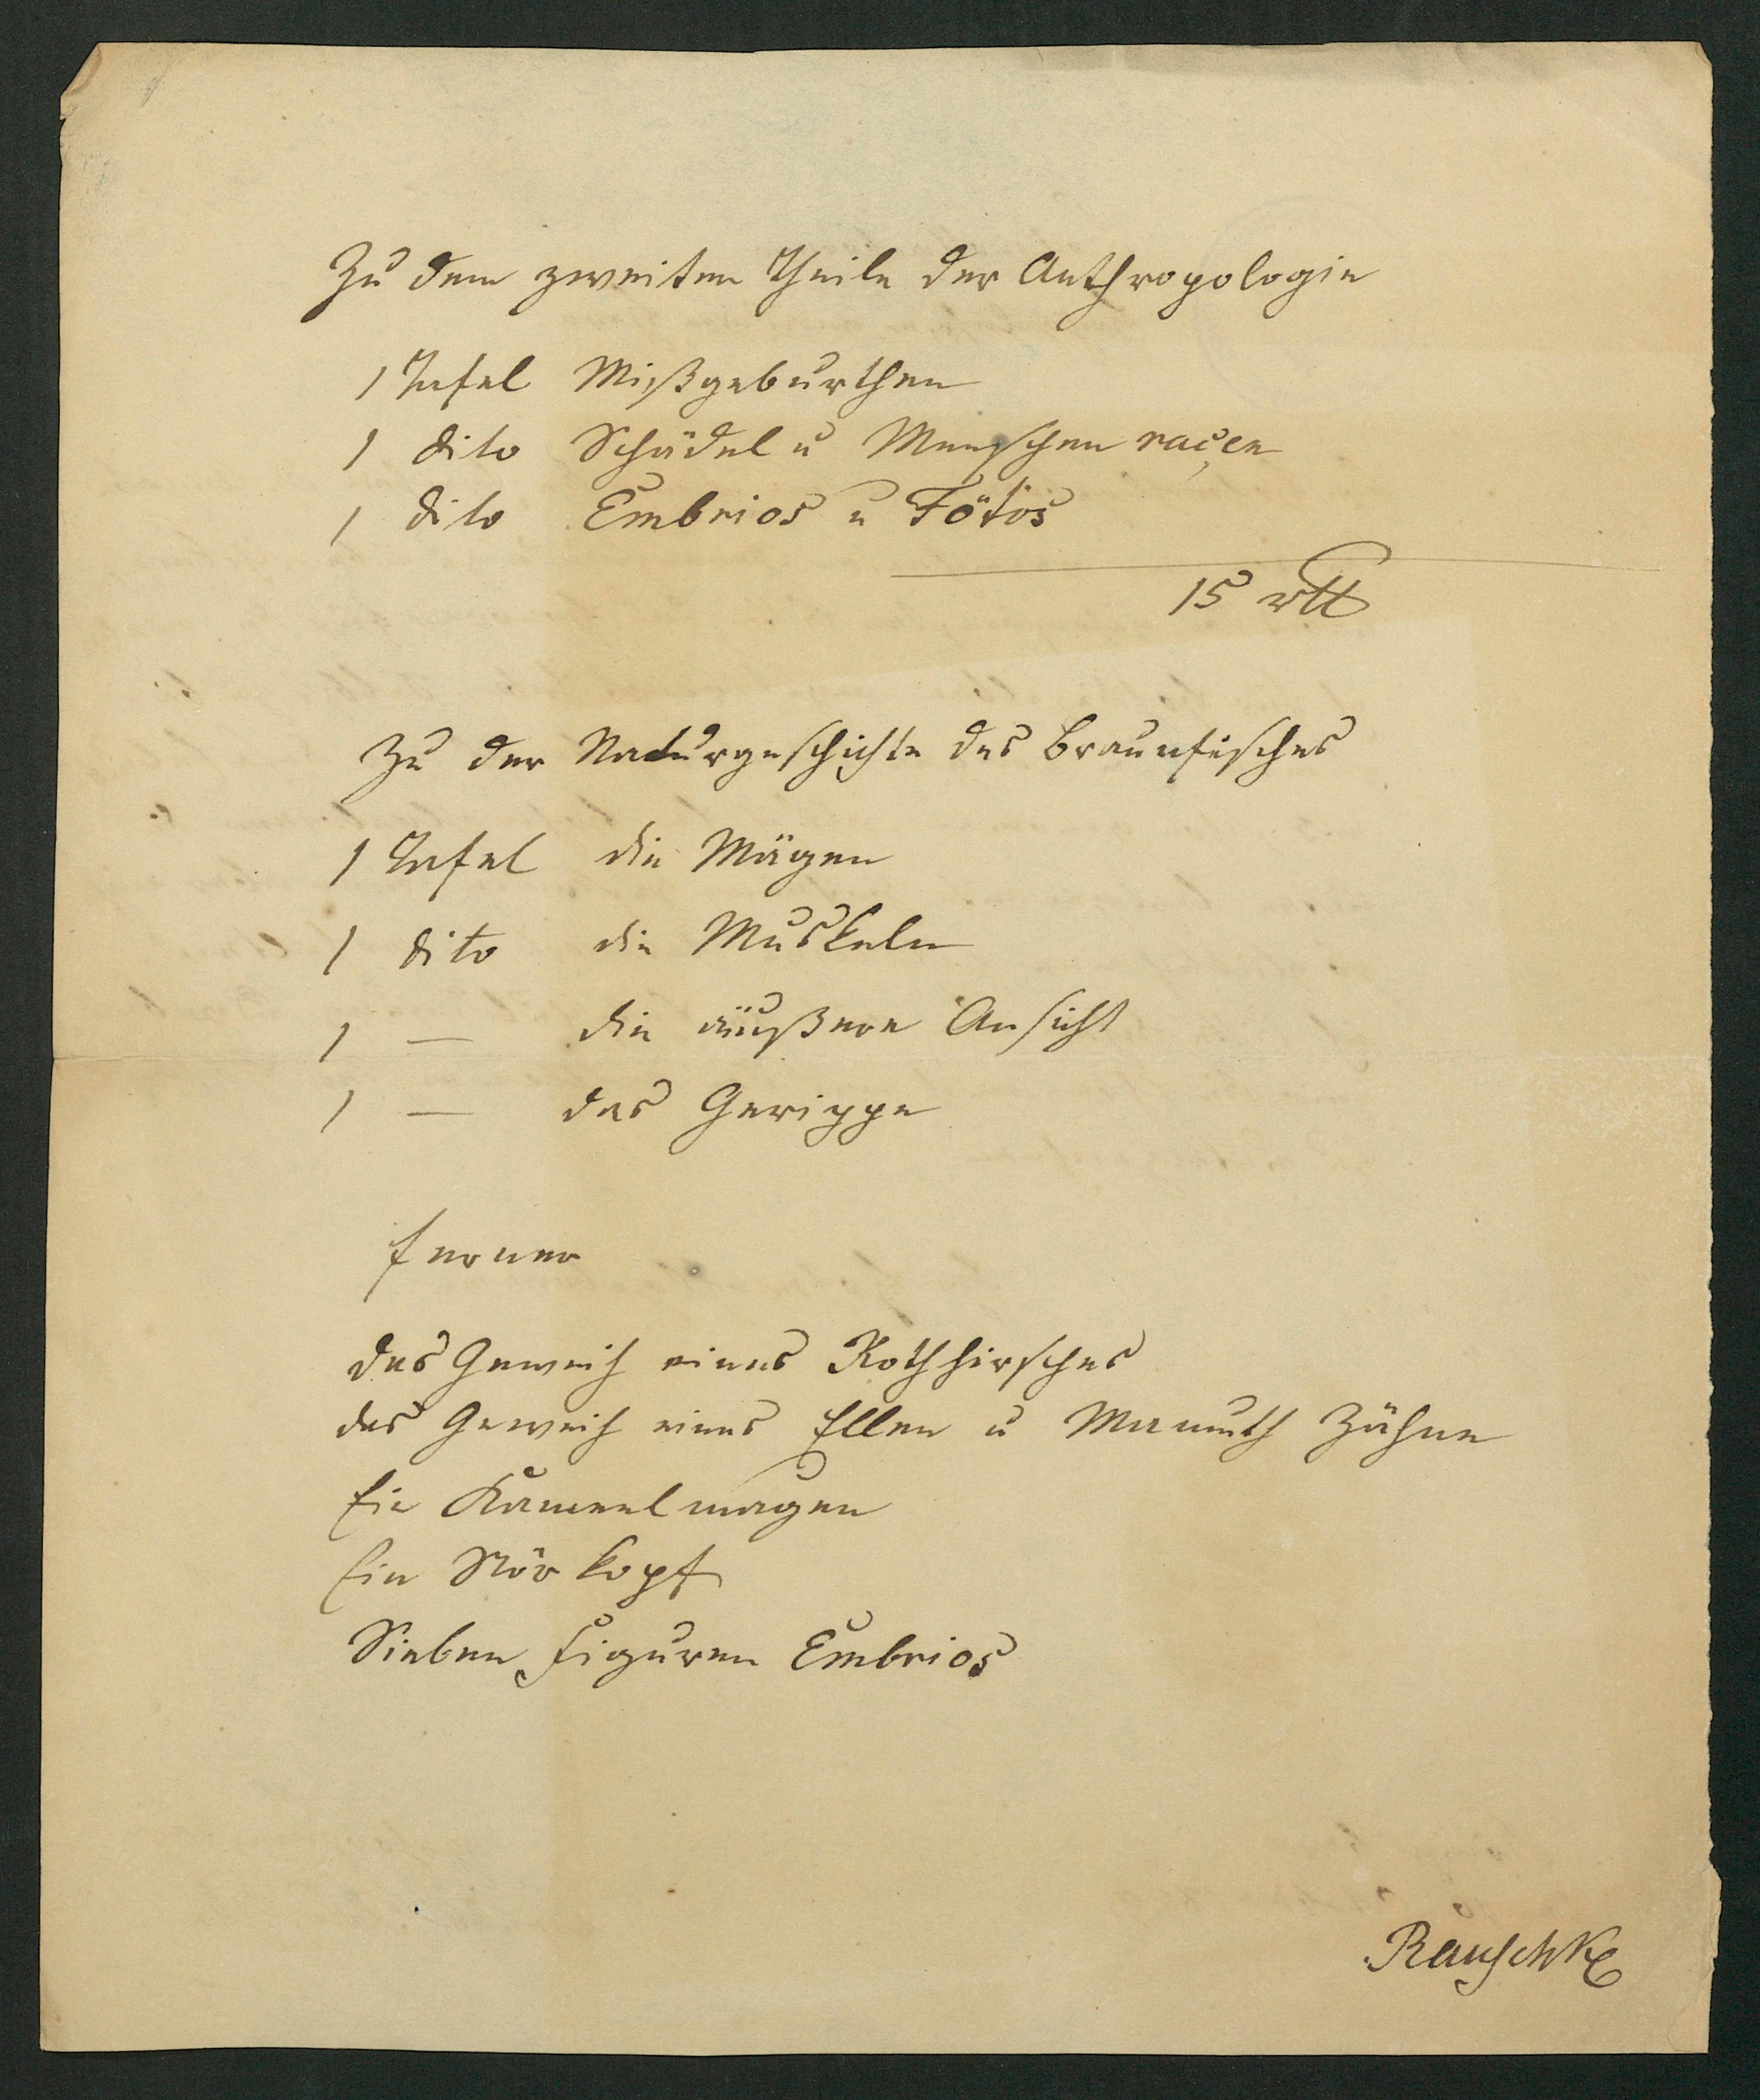 Zu dem zweiten Theile der Anthropologie
1 Tafel Mißgeburthen
1 dito Schädel u Menschen raçen
1 dito Embrios u Fötus
15 rtl
Zu der Naturgeschichte des Braunfisches
1 Tafel die Mägen
1 dito die Muskeln
1 — die äußere Ansicht
1 — das Gerippe
ferner
das Geweih eines Rothhirsches
das Geweih eines Ellen u Mamuth Zähne
Ein Kameelmagen
Ein Störkopf
Sieben Figuren Embrios
Rauschke